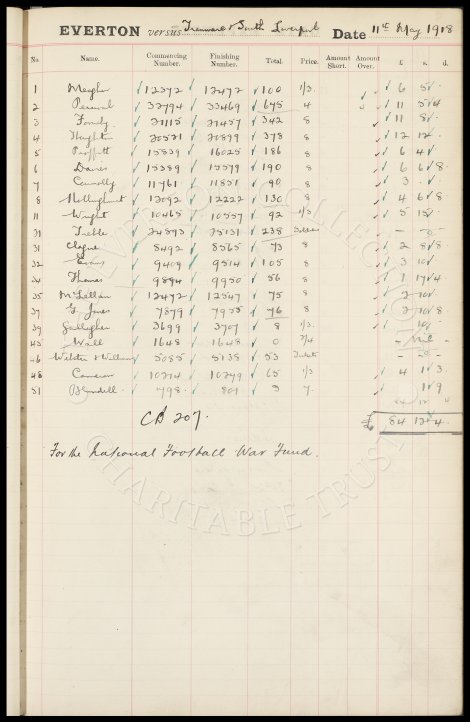 EVERTON versus Tranmere & South Liverpool Date 11th May 1918
No. Name. Commencing Number. Finishing Number. Total. Price. Amount Short. Amount Over. £ s. d.
1 Meagher 12372 12472 100 1/3 6 5
2 Percival 32794 33469 675 4 11 5 4
3 31115 31457 342 8 11 8
4 Houghton 20521 20899 378 8 12 12
5 15839 16025 186 8 6 4
6 Davies 15389 15579 190 8 6 6 8
7 Connolly 11761 11851 90 8 3
8 Hollinghurst 12092 12222 130 8 4 6 8
11 Wright 10465 10557 92 1/3 5 15
31 Treble 24893 25131 238
31 Clague 8492 8565 73 8 2 8 8
32 Evans 9409 9514 105 8 3 10
34 Thomas 9894 9950 56 8 1 17 4
35 McLellan 12472 12547 75 8 2 10
37 G. Jones 7879 7955 76 8 2 10 8
39 Gallagher 3699 3707 8 1/3 10
45 Wall 1648 1648 0 2/4 Nil
46 Webster & William 5085 5138 53
48 Cameron 10214 10279 65 1/3 4 1 3
51 Blundell 798 801 3 7 1 9
£ 84 12 4
CB 207.
For the National Football War Fund.
EVERTON COLLECTION
CHARITABLE TRUST